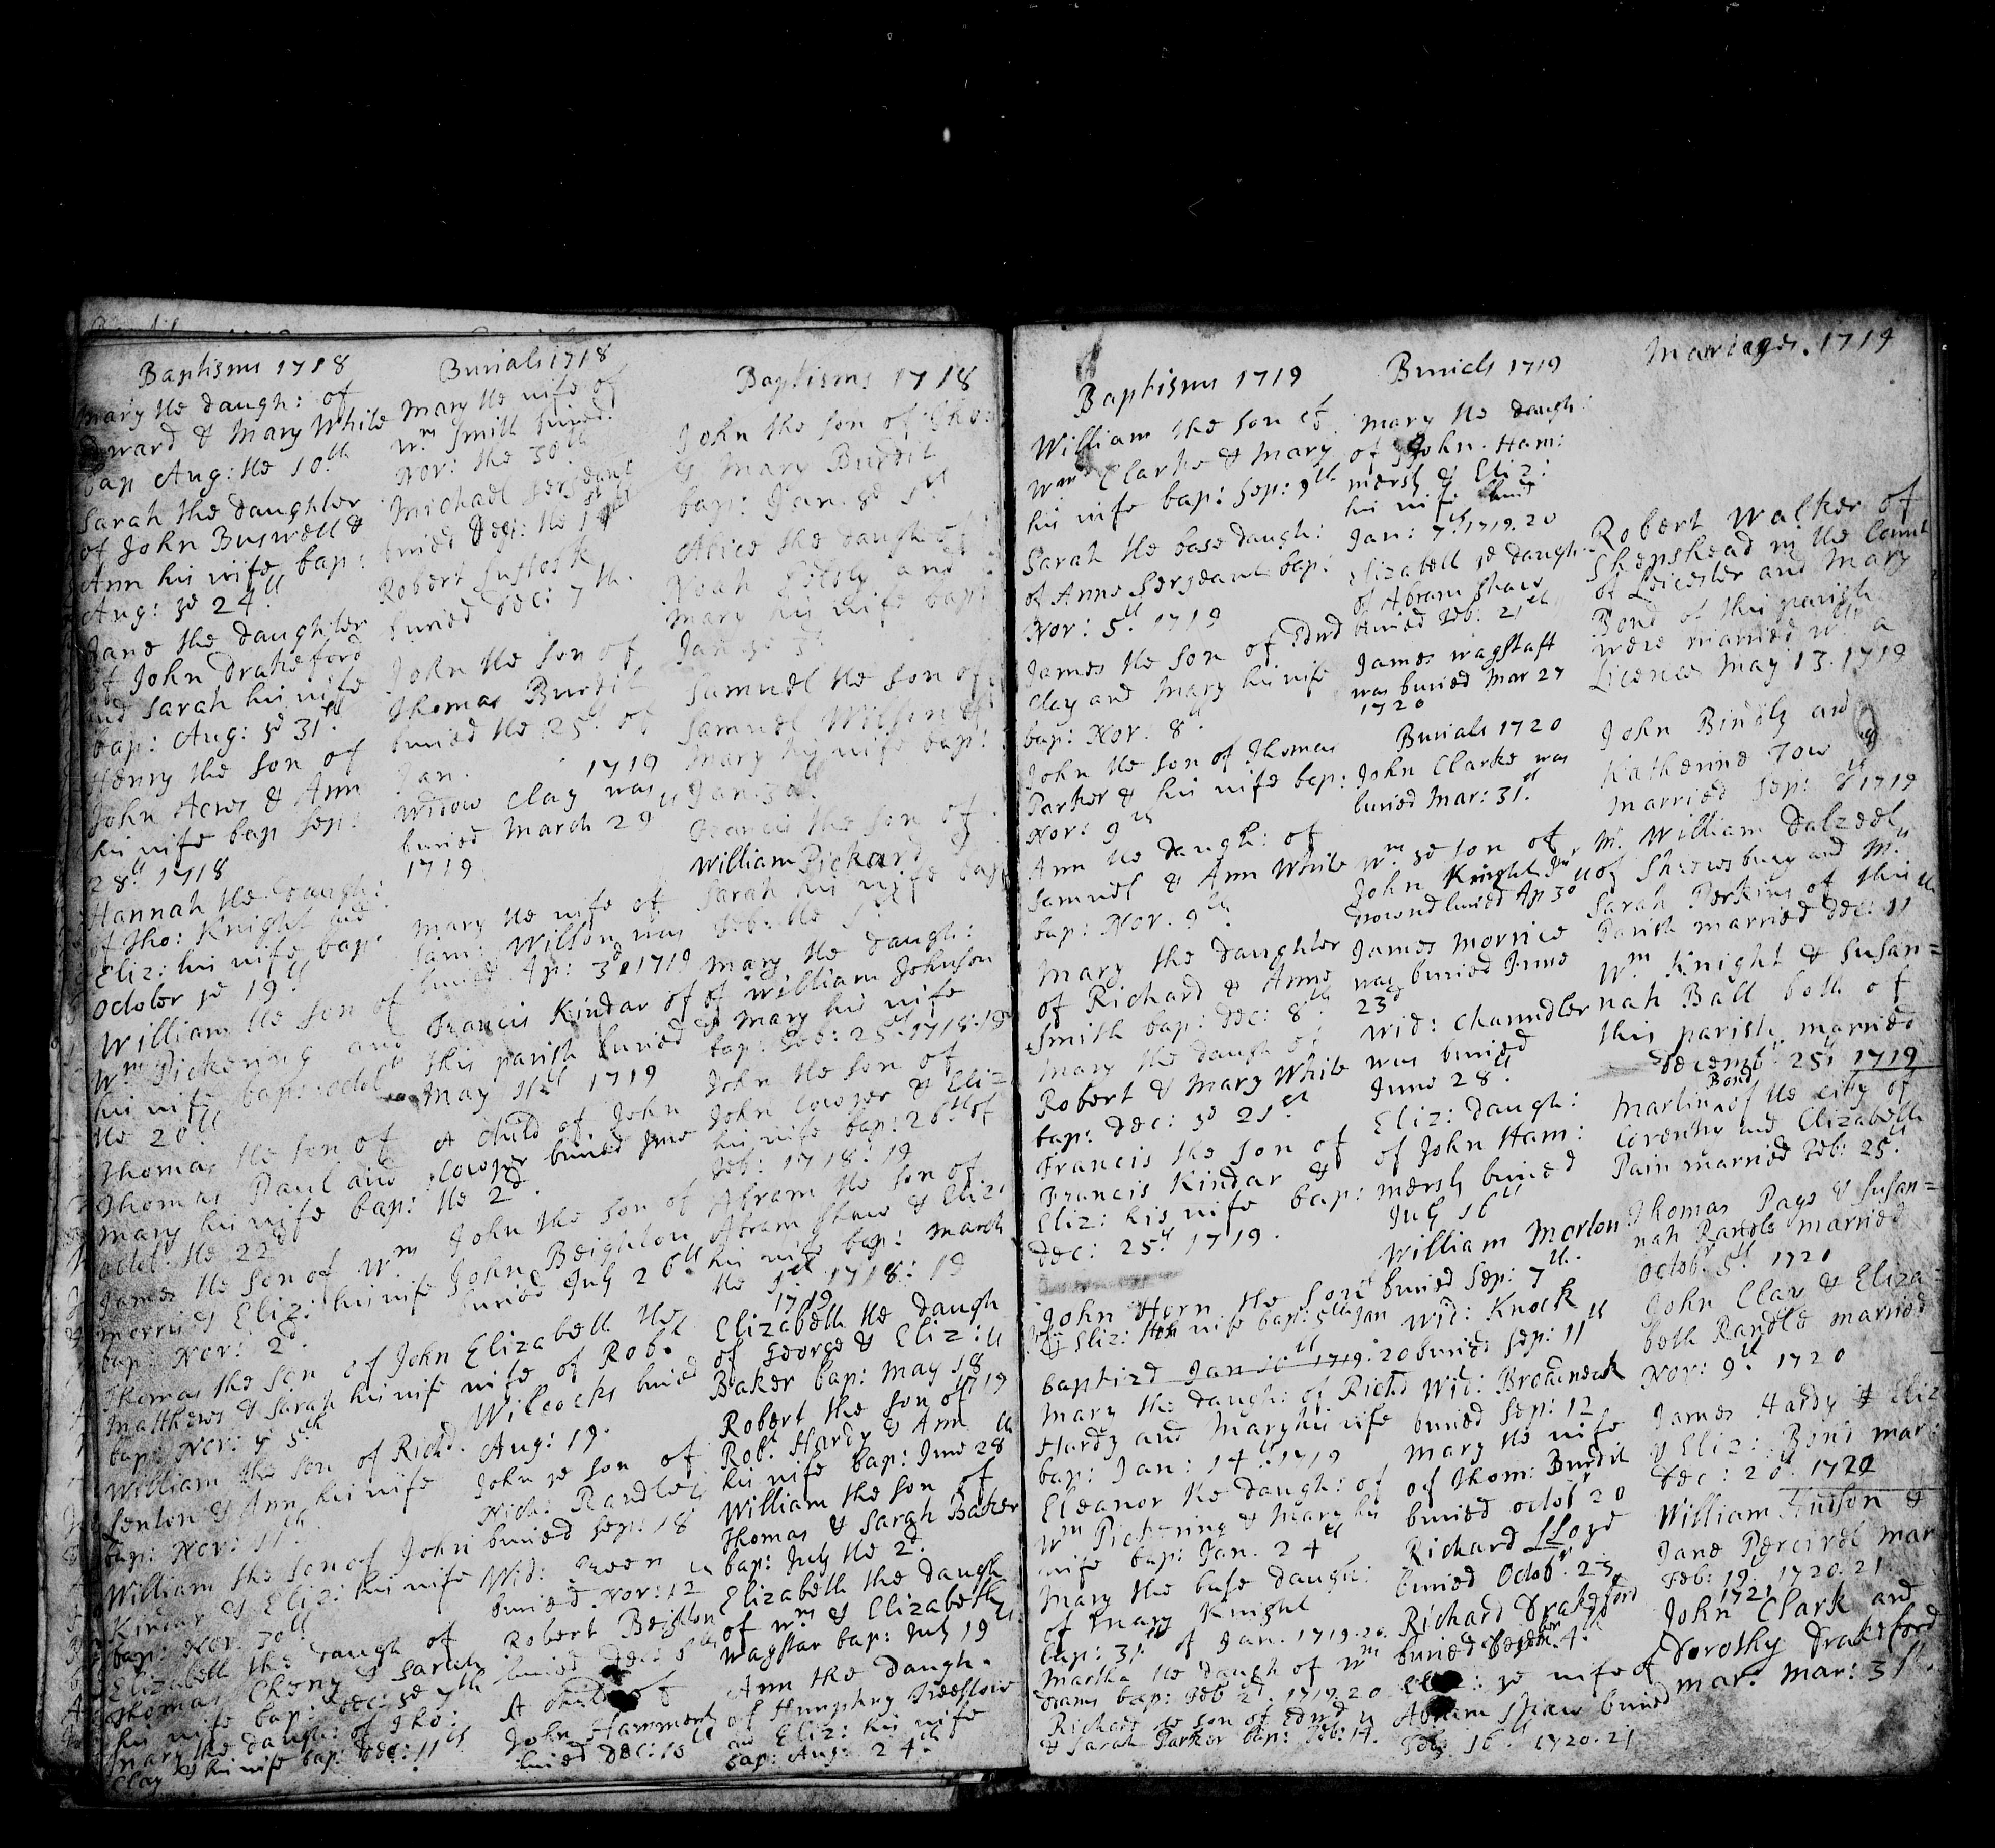 Baptisms 1718
Mary the Daugh: of
Edward & Mary White
bap Aug: the 10th
Sarah the Daughter
of John Buswell &
Ann his wife bap:
Aug: ye 24th
Jane the Daughter
of John Drakeford
and Sarah his wife
bap: Aug: ye 31st
Henry the son of
John Acres & Ann
his wife bap Sep:
28th 1718
Hannah the Daugh:
of Tho: Knight and
Eliz: his wife bap:
October ye 19th
William the son of
Wm Pickering and
his wife bap: Octobr
the 20th
Thomas the son of
Thomas Paul and
Mary his wife bap: the 2d
Octob: the 22d
James the son of Wm
Merry & Eliz: his wife
bap: Nov: 2d
Thomas the son of John
Matthews & Sarah his wife
bap: Nov: ye 5th
William the son of Richd
Lenton & Ann his wife
bap: Nov: 11th
William the son of John
Kindar & Eliz: his wife
bap: Nov: 30th
Elizabeth the Daugh of
Thomas Cheny & Sarah
his wife bap: Dec: ye 7th
Mary the Daugh: of Tho:
Clay & his wife bap: Dec: 11th
Burials 1718
Mary the wife of
Wm Smith buried
Nov: the 30th
Michael Serjeant
buried Dec: the
Robert
buried Dec: 7th.
John the son of
Thomas Burdit
buried the 25th of
Jan.
1719
Widow Clay was
buried March 29th
1719
Mary the wife of
Sam: Wilson was
buried Ap: 3d 1719
Francis Kindar of
this parish buried
May 11th 1719
A Child of John
Cowper buried June
John the son of
John Beighton
buried July 26th
Elizabeth the
wife of Robt
Wilcocks buried
Aug: 19.
John ye son of
Nich: Randle
buried Sep: 18
Wid: Green
buried Nov: 12
Robert Beighton
buried Dec: 8th
A child of
John Hammersly
buried Dec: 10th
Baptisms 1718
John the son of Tho:
& Mary Burdit
bap: Jan. ye 1st
Alice the daughter of
Noah and
Mary his wife bap:
Jan ye 3d
Samuel the son of
Samuel Wilson &
Mary his wife bap:
Jan. 30th
Francis the son of
William Pickard
Sarah his wife bap
Feb: the 1st
Mary the daugh:
of William Johnson
& Mary his wife
bap: Feb: 25th 1718:19
John the son of
John Cowper & Eliz:
his wife bap: 26th of
Feb: 1718:19
Abram the son of
Abram Shaw & Eliz:
his wife bap: March
the 1st 1718:19
1719
Elizabeth the Daugh
of George & Eliz:
Baker bap: May 18th
Robert the son of
Robt Hardy & Ann
his wife bap: June 28th
William the son of
Thomas & Sarah Baker
bap: July the 2d.
Elizabeth the Daugh
of Wm & Elizabeth
Wagstaf bap: July 19th
Ann the Daugh.
of Humphry
and Eliz: his wife
bap: Aug: 24th
Baptisms 1719
William the son of
Wm Clarke & Mary
his wife bap: Sep: 9th
Sarah the base Daugh:
of Anne Serjeant bap:
Nov: 5th 1719
James the son of Edwd
Clay and Mary his wife
bap: Nov. 8th
John the son of Thomas
Parker & his wife bap:
Nov: 9th
Ann the Daugh: of
Samuel & Ann White
bap: Nov. 9th
Mary the Daughter
of Richard & Anne
Smith bap: Dec: 8th
Mary the daugh of
Robert & Mary White
bap: Dec: ye 21st
Francis the son of
Francis Kindar &
Eliz: his wife bap:
Dec: 25th 1719.
John Horn the son
& Eliz: his wife bap: 5th Jan
baptizd Jan 10th 1719:20
Mary the daugh: of Richd
Hardy and Mary his wife
bap: Jan: 14th: 1719
Eleanor the Daugh: of
Wm Pickering & Mary his
wife bap: Jan. 24th
Mary the base daugh:
of Mary Knight
bap: 31st of Jan. 1719.20.
Martha the daugh of Wm
Deams bap: Feb 2d. 1719.20
Richard ye son of Edwd
& Sarah Parker bap: Feb: 14.
Burials 1719
Mary the Daugh:
of John Ham:
mersly & Eliz:
his wife buried
Jan: 7th 1719.20
Elizabeth ye Daugh
of Abram Shaw
buried Feb: 21st
James Wagstaff
was buried Mar 27
1720
Burials 1720
John Clarke was
buried Mar: 31st
Wm ye son of
John Knight Junr
buried Ap 30th
James Morrice
was buried June
23d
Wid: Chaundler
was buried
June 28th
Eliz: Daugh:
of John Ham:
mersly buried
July 16th
William Morton
buried Sep: 7th.
Wid: Knock
buried Sep: 11th
Wid: Broadneck
buried Sep: 12
Mary the wife
of Thom: Burdit
buried Octobr 20
Richard LLoyd
buried Octobr. 23
Richard Drakeford
buried 4th
ye wife of
Abram Shaw buried
Feb: 16th 1720.21
Mariages. 1719
Robert Walker of
Shepshead in the Count
of Leicester and Mary
Bond of this parish
were married wth a
Licence May 13. 1719
John Bindly and
Katherine Tow
married Sep: 8th 1719
Mr William Dalzeel
of Shrewsbury and Mrs
Sarah Perkins of this
Parish married Dec: 11th
Wm Knight & Susan=
nah Ball both of
this parish married
Decembr 25th 1719
Bond
Martin of the city of
Coventry and Elizabeth
Pain married Feb: 25th
Thomas Page & Susan=
nah Randle married
Octobr 5th 1720
John Clay & Eliza=
beth Randle married
Nov: 9th 1720
James Hardy & Eliz
Eliz: Bond mar:
Dec: 26th 1720
William Hudson &
Jane Percivel mar
Feb: 19. 1720.21.
1721
John Clark and
Dorothy Drakeford
mar: Mar: 31st